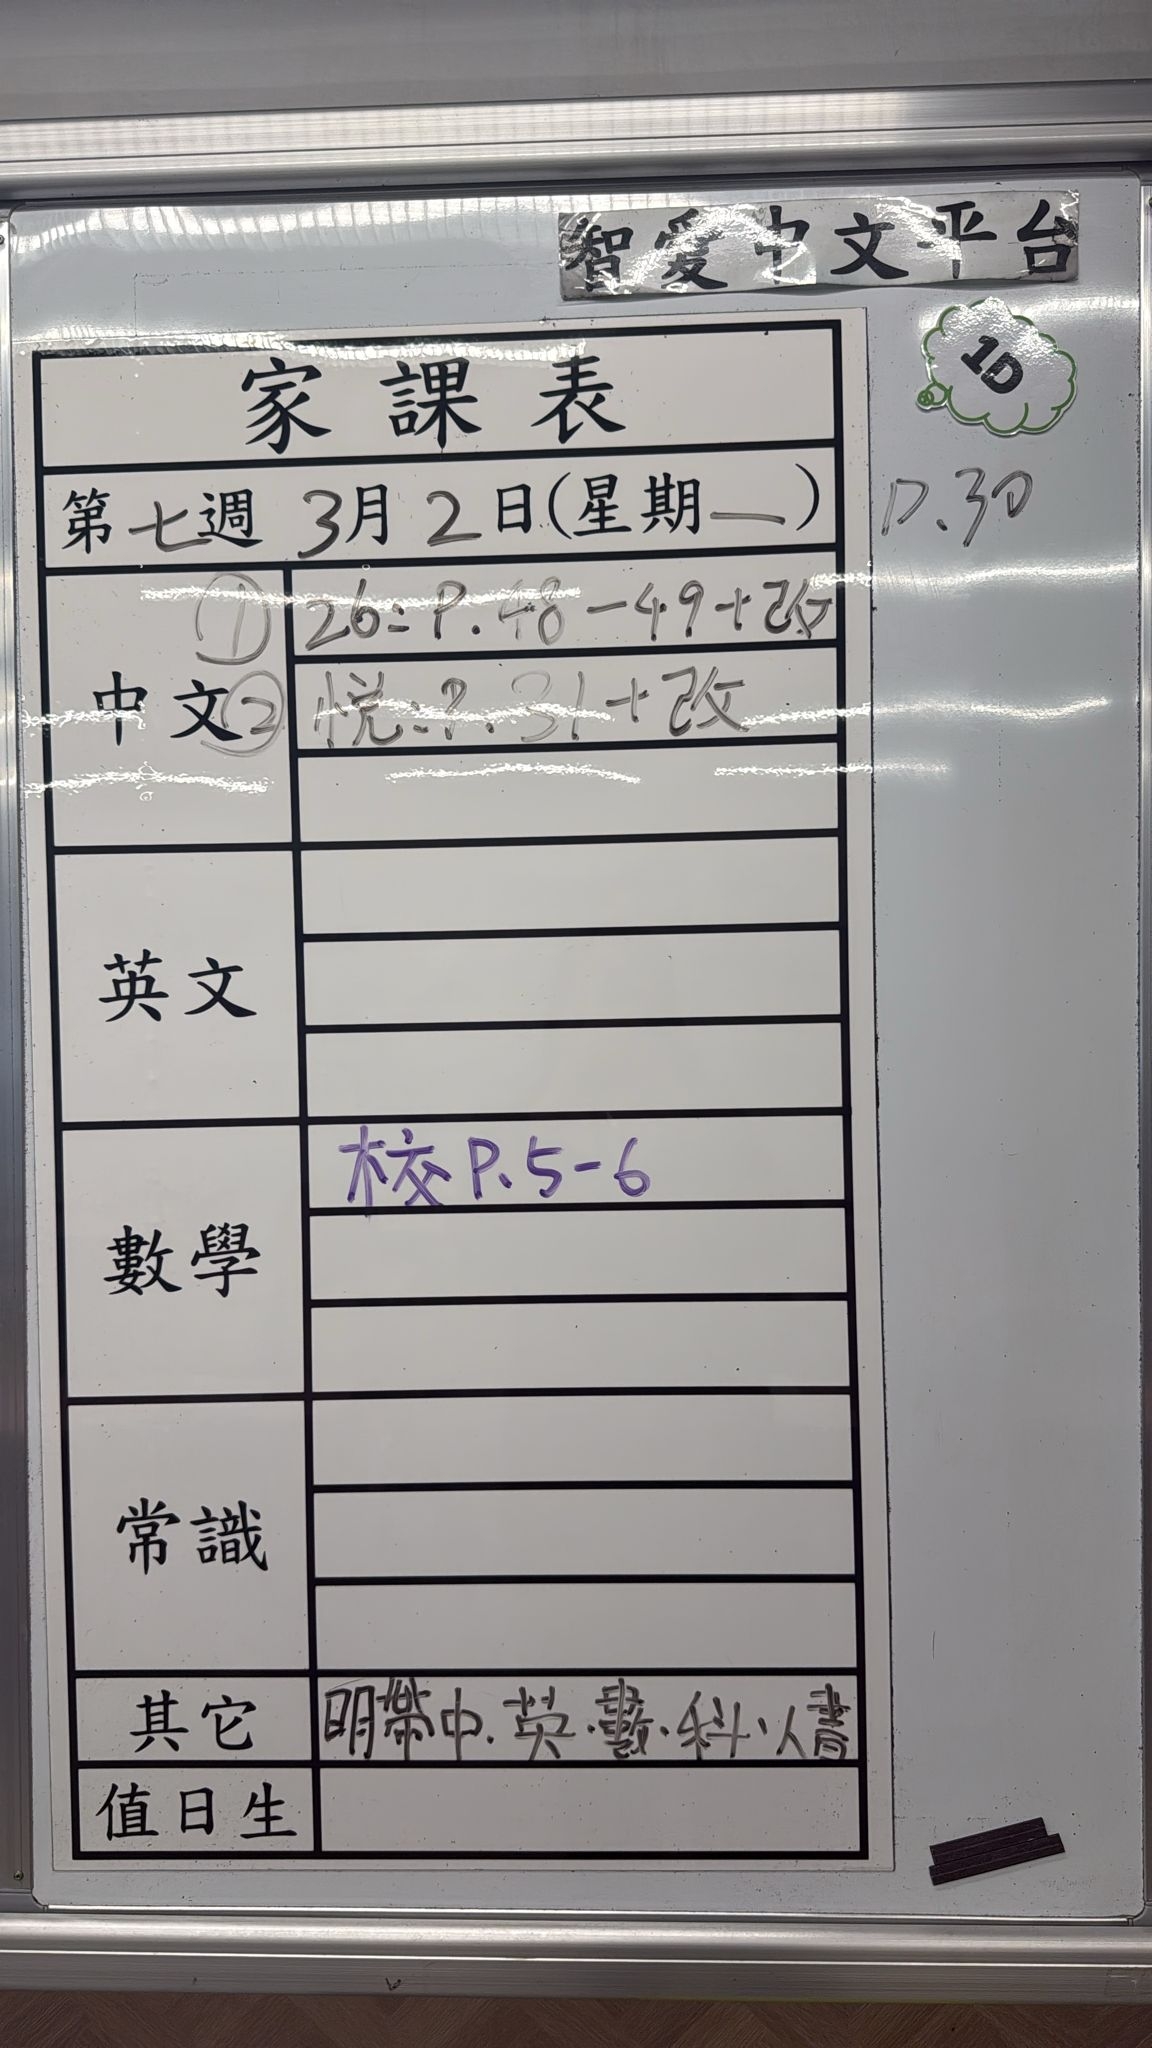 智愛中文平台
1D
家課表
第七週 3月2日(星期一)
P.30
中文
① 26:P.48-49+改
② 悦:P.31+改
英文
數學
校P.5-6
常識
其它
明帶中.英.數.科.人書
值日生